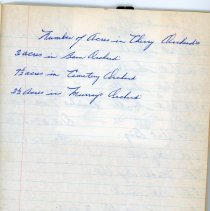 Number of Acres in Cherry Orchards
3 acres in Orchard
7½ acres in Cemetery Orchard
3½ Acres in Murray's Orchard